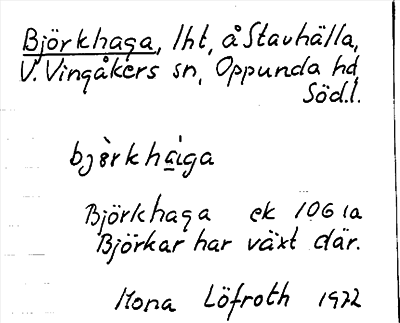 Björkhaga, lht, å Stavhälla,
V. Vingåkers sn, Oppunda hd,
Söd.l.
bjèrkhàiga
Björkhaga ek 1061a
Björkar har växt där.
Mona Löfroth 1972